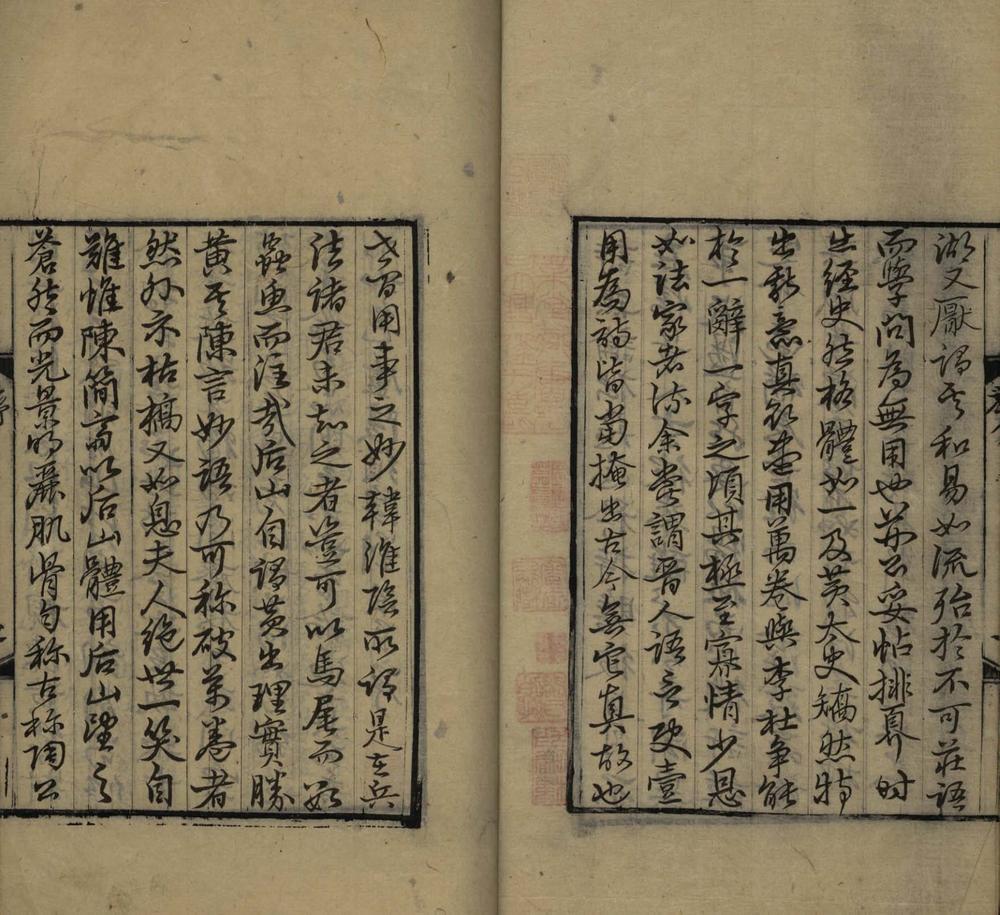 湖又厭謂其和易如流殆於不可莊語
而學問為無用也荊公妥帖排奡時
出經史然格體如一及黃太史矯然特
出新意真欲盡用萬卷與李杜爭能
於一辭一字之頃其極至寡情少恩
如法家者流余嘗謂晉人語言使壹
用為詩皆當掩出古今無它真故也
世間用事之妙韓淮陰所謂是在兵
法諸君未知之者豈可以馬尾而數
蟲魚而注哉后山自謂黃出理實勝
黃其陳言妙語乃可称破萬卷者
然外示枯槁又如息夫人絕世一笑自
難惟陳簡齋以后山體用后山望之
蒼然而光景明麗肌骨勻称古称陶公